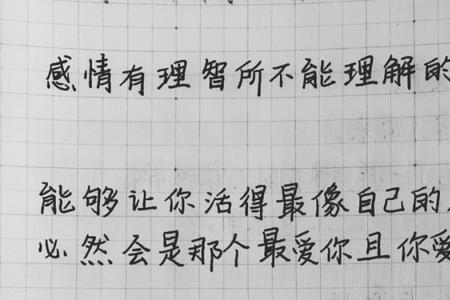 感情有理智所不能理解的
能够让你活得最像自己的
必然会是那个最爱你且你爱